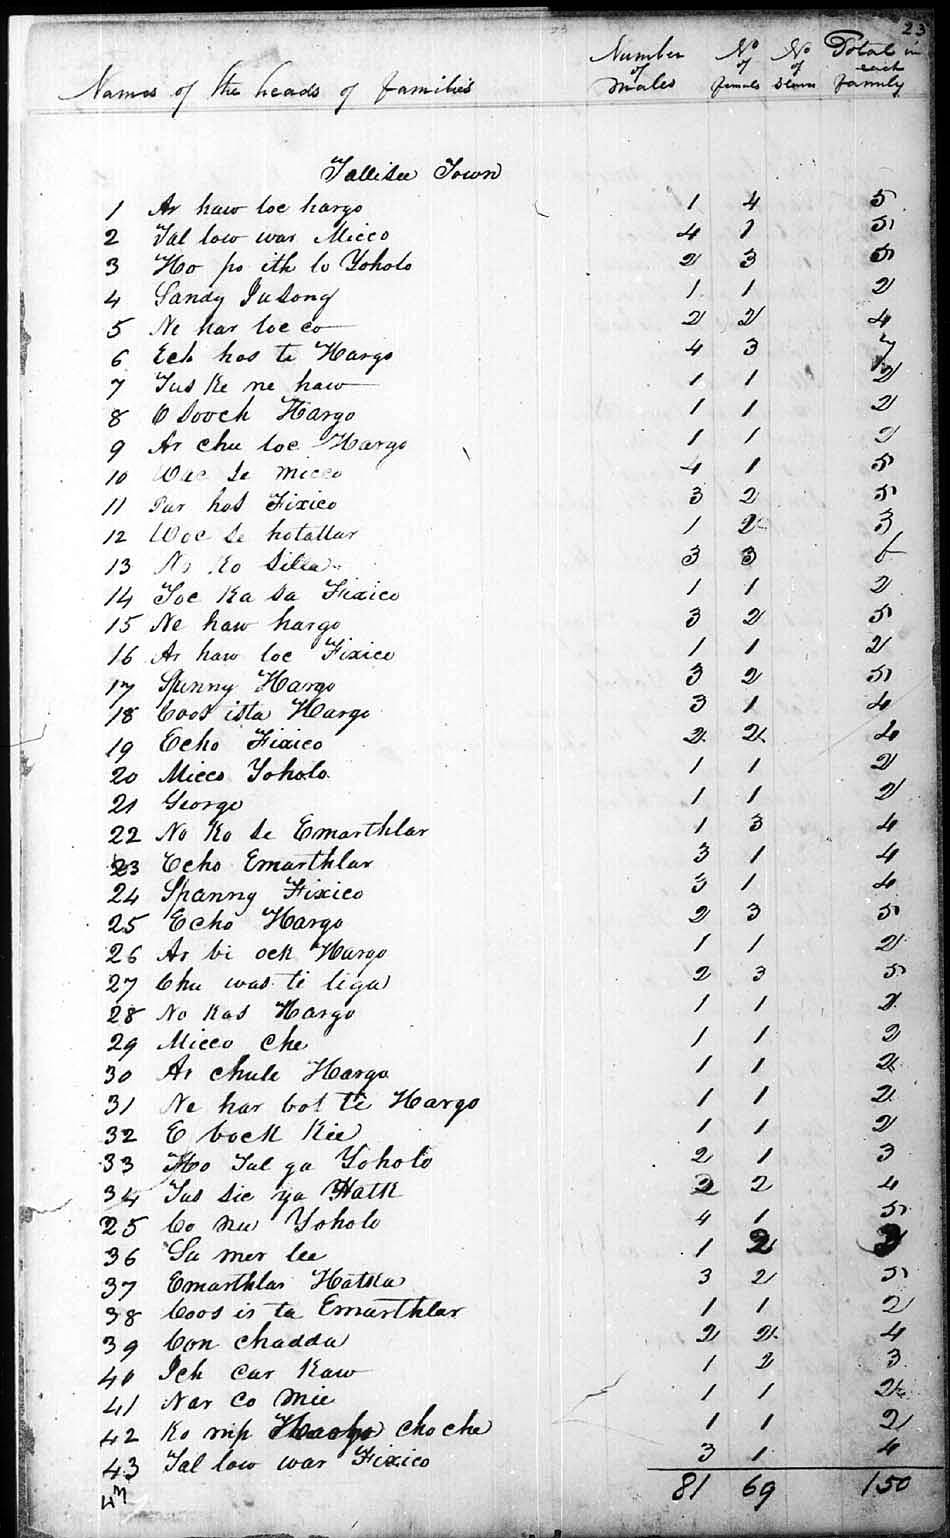 23
Names of the heads of families Number of Males No of females No of Slaves Total in each family
Tallisee Town
1 Ar haw loc hargo 1 4 5
2 Tal low war Micco 4 1 5
3 Ho po ith lo Yoholo 2 3 5
4 Sandy 1 1 2
5 Ne har loc co 2 2 4
6 Ech hos te Hargo 4 3 7
7 Tus ke ne haw 1 1 2
8 O sooch Hargo 1 1 2
9 Ar chu loc Hargo 1 1 2
10 Woc se micco 4 1 5
11 Par hos Fixico 3 2 5
12 Woc se hotallar 1 2 3
13 No ko silla 3 3 6
14 Toc ka sa Fixico 1 1 2
15 Ne haw hargo 3 2 5
16 Ar haw loc Fixico 1 1 2
17 Spanny Hargo 3 2 5
18 Coos ista Hargo 3 1 4
19 Echo Fixico 2 2 4
20 Micco Yoholo 1 1 2
21 George 1 1 2
22 No ko se Emarthlar 1 3 4
23 Echo Emarthlar 3 1 4
24 Spanny Fixico 3 1 4
25 Echo Hargo 2 3 5
26 Ar bi ock Hargo 1 1 2
27 Chu was ti liga 2 3 5
28 No kos Hargo 1 1 2
29 Micco Che 1 1 2
30 Ar chule Hargo 1 1 2
31 Ne har bot te Hargo 1 1 2
32 E bock kee 1 1 2
33 Ho Tul ga Yoholo 2 1 3
34 Tus sic ya Hatk 2 2 4
25 Co nu Yoholo 4 1 5
36 Su mer lee 1 2 3
37 Emarthlar Hatka 3 2 5
38 Coos is ta Emarthlar 1 1 2
39 Con chadda 2 2 4
40 Ich car kaw 1 2 3
41 Nar co mie 1 1 2
42 Ko nip cho che 1 1 2
43 Tal low war Fixico 3 1 4
43 81 69 150